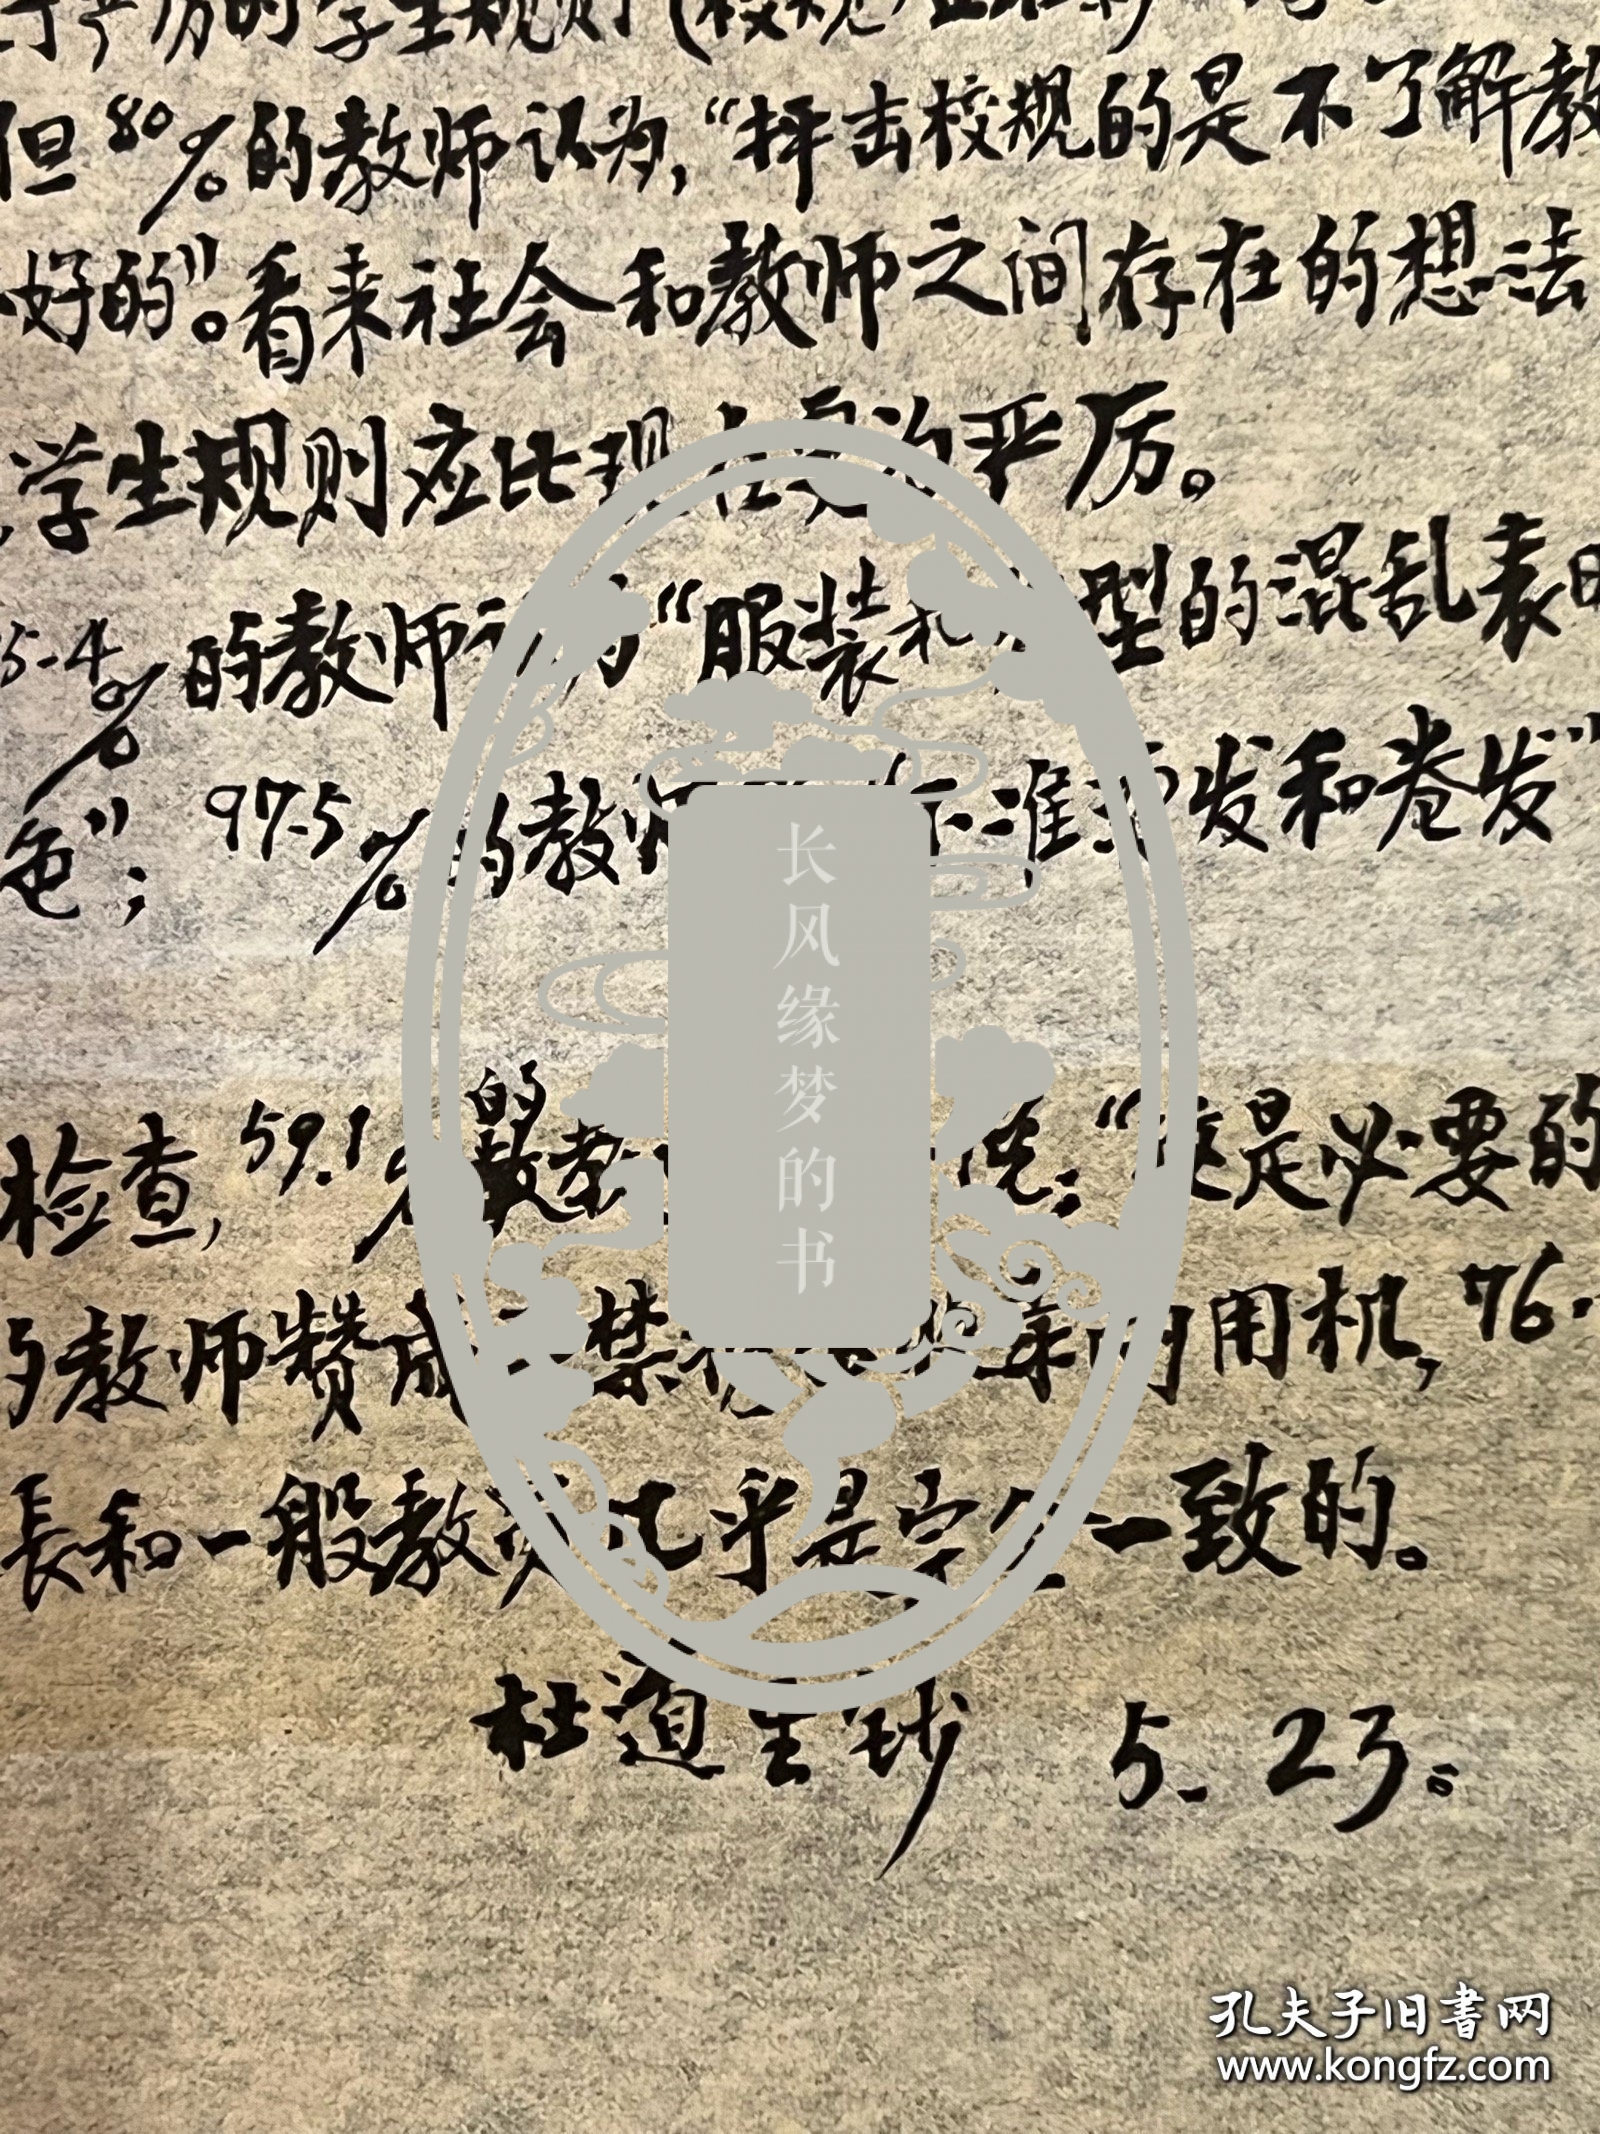 厉的学生规则(校规
但80%的教师认为,“抨击校规的是不了解教
好的”。看来社会和教师之间存在的想法
学生规则应比现在更为严厉。
5.4%的教师认为“服装和 型的混乱表
色”; 97.5%的教师 不准 发和卷发”
检查,59.1%的教 说:“这是必要的
的教师赞成 禁 用机,76.
長和一般教员几乎是完全一致的。
杜道生抄 5.23。
长风缘梦的书
孔夫子旧書网
www.kongfz.com